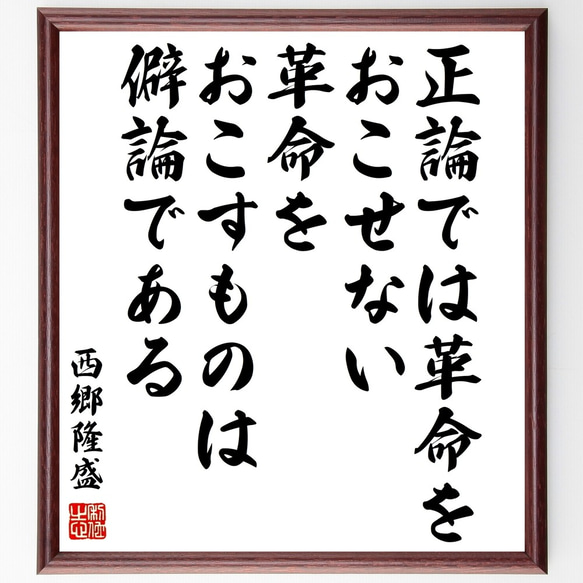 正論では革命を
おこせない
革命を
おこすものは
僻論である
西郷隆盛